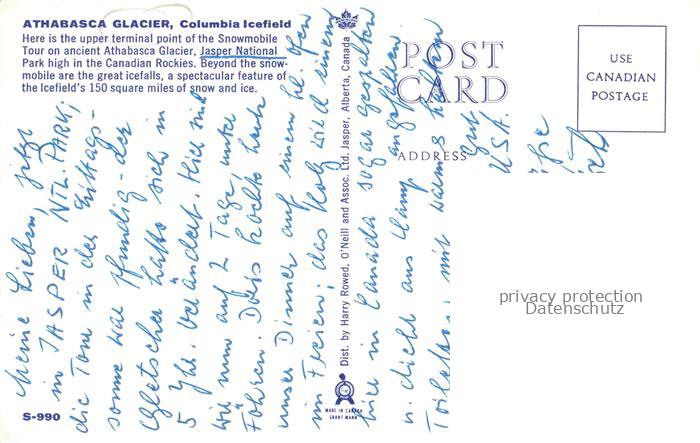 ATHABASCA GLACIER, Columbia Icefield
Here is the upper terminal point of the Snowmobile
Tour on ancient Athabasca Glacier, Jasper National
Park high in the Canadian Rockies. Beyond the snow-
mobile are the great icefalls, a spectacular feature of
the Icefield's 150 square miles of snow and ice.
POST
CARD
ADDRESS
USE
CANADIAN
POSTAGE
Meine Lieben, jetzt
in JASPER NTL. PARK;
die Tour in der Mittags-
sonne war pfundig - der
Gletscher hatte sich in
5 Jhr. verändert. Hier sind
wir nun auf 2 Tage, unter
Föhren. Doris kochte heute
unser Dinner auf einem kl. Ofen
im Freien; das Holz wird einem
hier in Canada sogar gespalten
u. dicht ans Camp angefahren
Toiletten mit warm &
gut
USA.
Dist. by Harry Rowed, O'Neill and Assoc. Ltd. Jasper, Alberta, Canada
MADE IN CANADA
GRANT MANN
S-990
privacy protection
Datenschutz